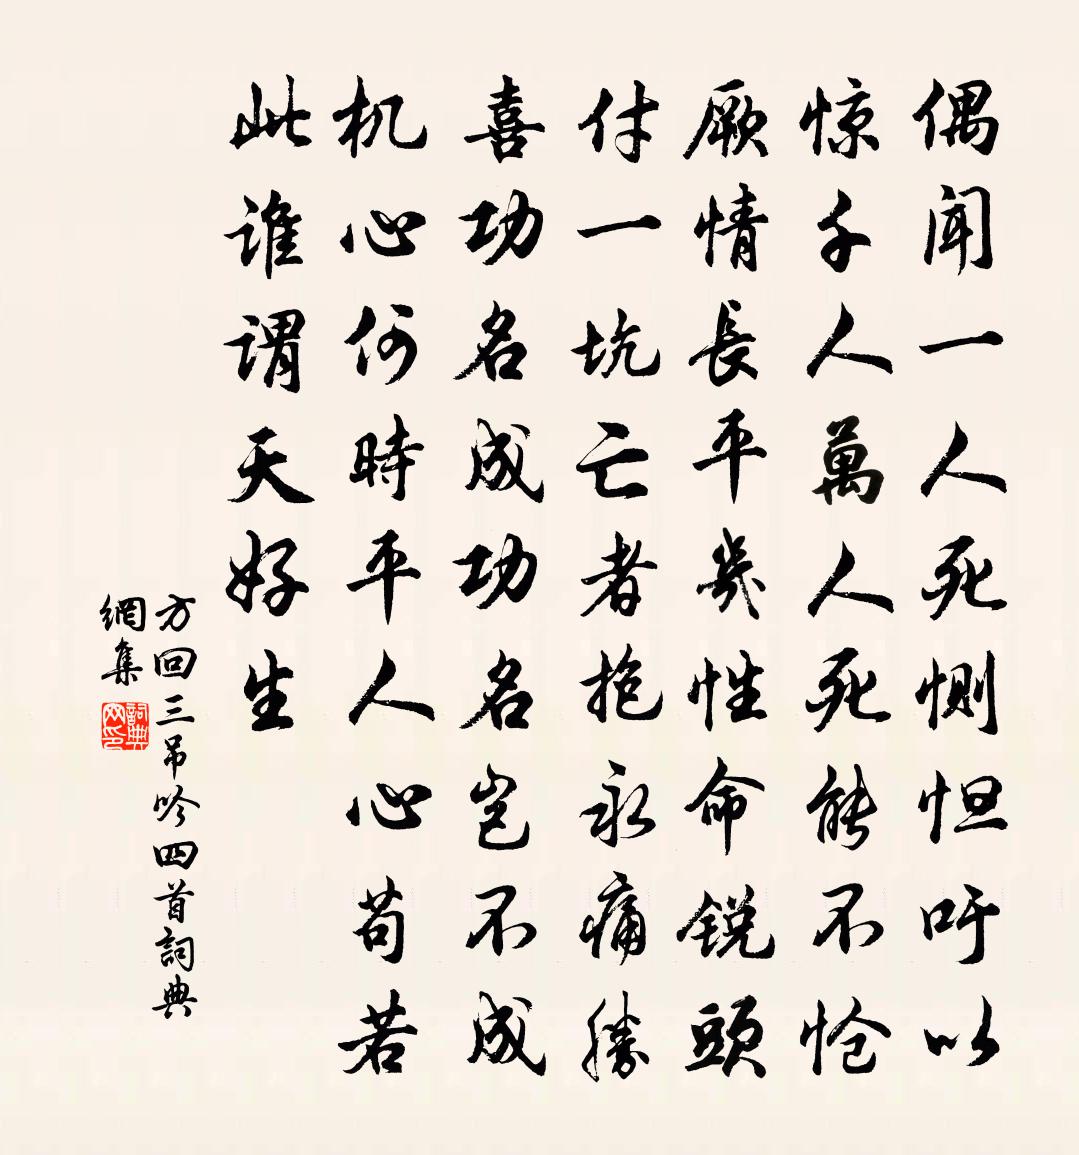 偶闻一人死恻怛吁以
惊千人萬人死能不怆
厥情長平幾性命锐頭
付一坑亡者抱永痛勝
喜功名成功名岂不成
机心何時平人心苟若
此谁谓天好生
方回三吊吟四首詞典
網集
詞典
网印